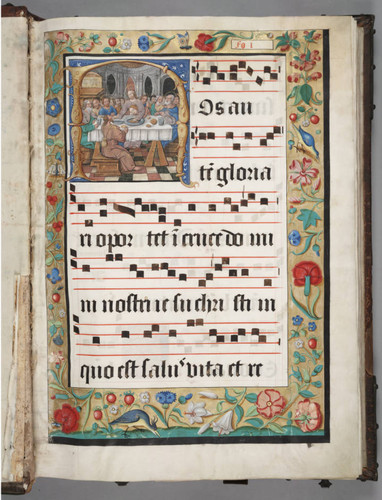 101
Nos au
tē gloria
ri opor tet ī cruce do mi
ni nostri ie su chri sti in
quo est salus vita et re